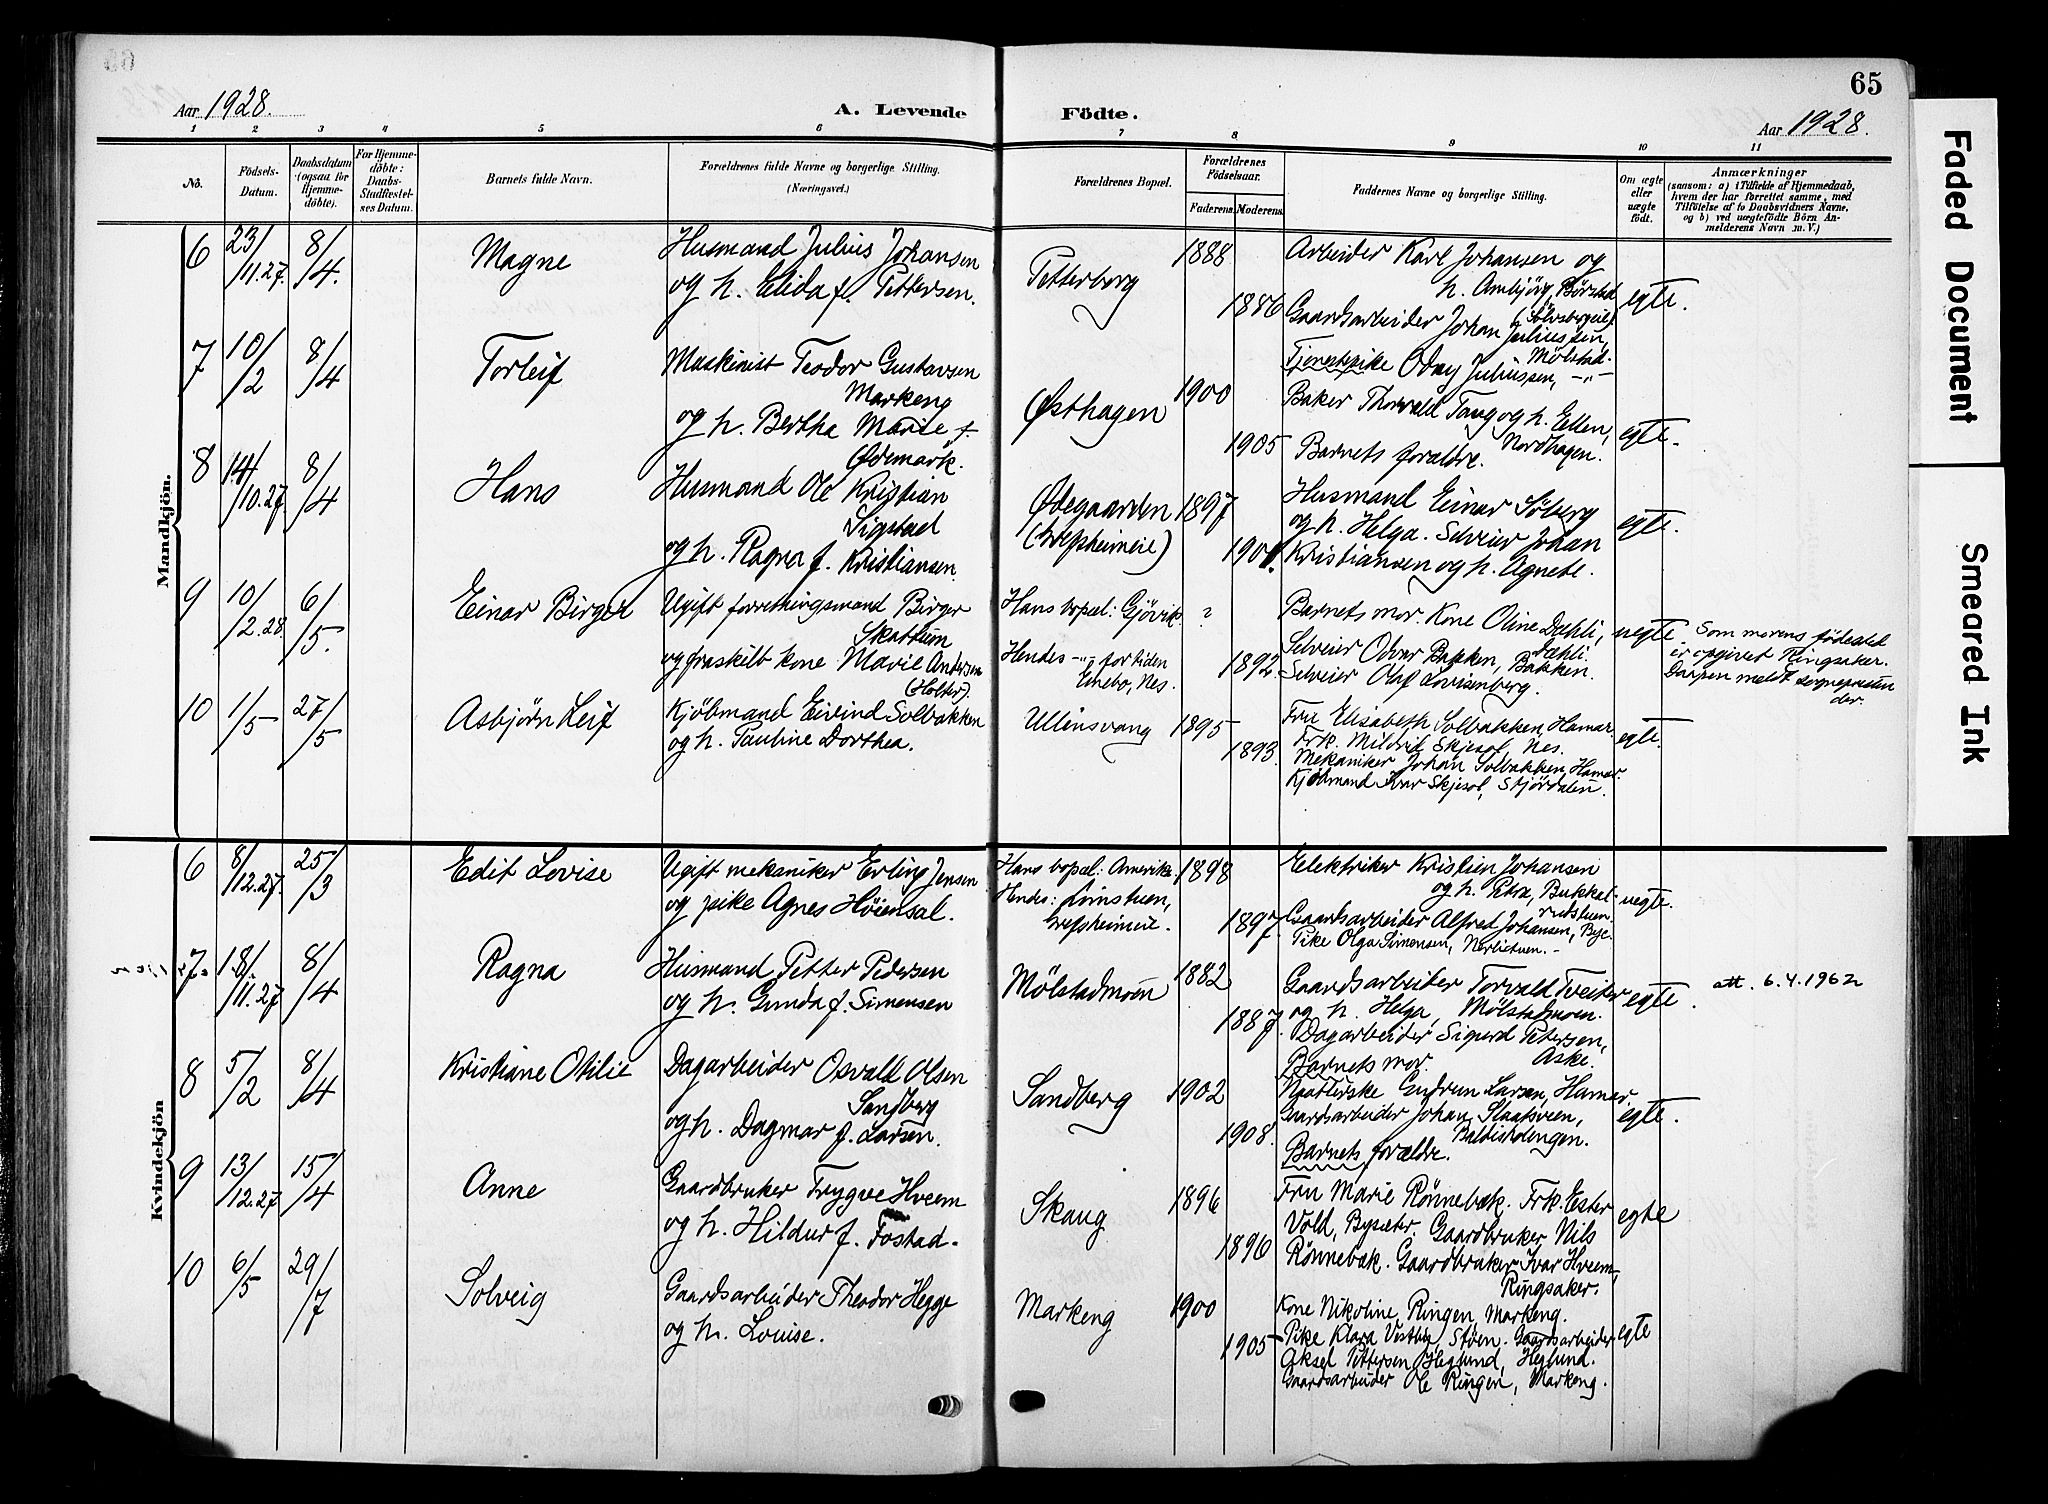 65
Aar 1928. A. Levende Födte. Aar 1928.
1 2 3 4 5 6 7 8 9 10 11
No.
Födsels-
Datum.
Daabsdatum
(ogsaa for
Hjemme-
döbte).
For Hjemme-
döbte:
Daabs-
Stadfæstel-
ses Datum.
Barnets fulde Navn.
Forældrenes fulde Navne og borgerlige Stilling.
(Næringsvei.)
Forældrenes Bopæl.
Forældrenes
Födselsaar.
Faderens. Moderens.
Faddernes Navne og borgerlige Stilling.
Om ægte
eller
uægte
födt.
Anmærkninger
(saasom: a) i Tilfælde af Hjemmedaab,
hvem der har forrettet samme, med
Tilföielse af to Daabsvidners Navne,
og b) ved uægtefödte Börn An-
melderens Navn m. V.)
Mandkjön.
6 23/11.27. 8/4. Magne
Husmand Julius Johansen
og h. Elida f. Pettersen.
Petterberg
1888
1886
Arbeider Karl Johansen og
h. Ambjörg, Börstad
Gaardsarbeider Johan Juliussen,
Mölstad.
Tjenestepike Odny Juliussen, -"-
egte.
7 10/2 8/4 Torleif
Maskinist Teodor Gustavsen
Markeng
og h. Bertha Marie f.
Ødemark.
Østhagen
1900
1905
Baker Thorvald Taug og h. Ellen,
Nordhagen.
Barnets forældre.
egte.
8 14/10.27 8/4 Hans
Husmand Ole Kristian
Sigstad
og h. Ragna f. Kristiansen.
Ødegaarden
1897
190
Husmand Einar Söberg
og h. Helga. Selveier Johan
Kristiansen og h. Agnete.
egte.
9 10/2.28. 6/5. Einar Birger
Ugift forretningsmand Birger
Skattum
og fraskilt kone Marie Andersen
(Holter).
Hans bopæl: Gjövik.
Hendes -"- for tiden
Enebo, Nes.
?
1892
Barnets mor. Kone Oline Dahli,
Dahli.
Selveier Odvar Bakken, Bakken.
Selveier Olaf Lovisenberg.
uegte.
Som morens födested
er opgivet Ringsaker.
Daapen meldt sognepresten
der.
10 1/5 27/5 Asbjørn Leif
Kjöbmand Eivind Solbakken
og h. Pauline Dorthea.
Ullinsvang
1895
1893.
Fru Elisabeth Solbakken, Hamar.
Frk. Mildrid Skjesol, Nes.
Mekaniker Johan Solbakken, Hamar.
Kjöbmand Ivar Skjesol, Stjördalen.
egte.
Kvindekjön
6 8/12.27. 25/3 Edit Lovise
Ugift mekaniker Erling Jensen
og pike Agnes Höiensal.
Hans bopæl: Amerika.
Hendes: Linstuen,
1898
1897.
Elektriker Kristian Johansen
og h. Petra, Bukkal-
rudstuen.
Gaardsarbeider Alfred Johansen, Bye.
Pike Olga Simensen, Nerlistuen.
uegte.
7 18/11.27 8/4 Ragna
Husmand Petter Pedersen
og h. Gunda f. Simensen
Mölstadmoen
1882
1887.
Gaardsarbeider Torvald Tveiter
og h. Helga, Mölstadmoen.
Dagarbeider Sigurd Petersen,
Aske.
Barnets mor.
egte.
att. 6.4.1962
8 5/2 8/4 Kristiane Otilie
Dagarbeider Osvald Olsen
Sandberg
og h. Dagmar f. Larsen.
Sandberg
1902
1908.
Naatterske Gudrun Larsen, Hamar.
Gaardsarbeider Johan Slaatsveen,
Baldisholengen.
Barnets forældre.
egte.
9 13/12.27 15/4 Anne
Gaardbruker Trygve Hveem
og h. Hildur f. Fostad.
Skaug
1896
1896
Fru Marie Rönnebæk. Frk. Ester
Vold, Bysæter. Gaardbruker Nils
Rönnebæk. Gaardbruker Ivar Hveem,
Ringsaker.
egte
10 6/5 29/7 Solveig
Gaardsarbeider Theodor Hegge
og h. Louise.
Markeng
1900
1905
Kone Nikoline Ringen, Markeng.
Pike Klara Vestby, Stöen. Gaardsarbeider
Aksel Pettersen Heglund, Heglund.
Gaardsarbeider Ole Ringen, Markeng.
egte
Faded Document
Smeared Ink